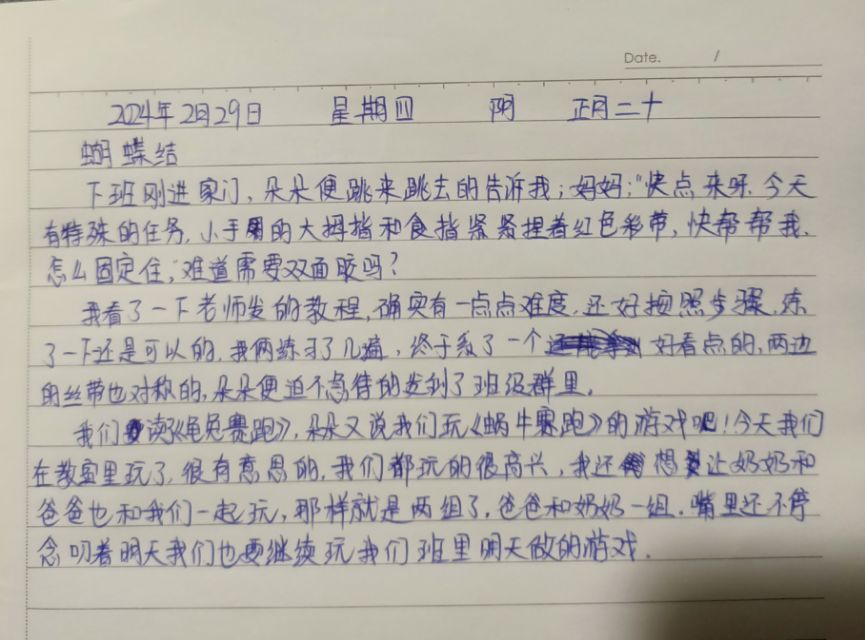 Date. /
2024年2月29日 星期四 阴 正月二十
蝴蝶结
下班刚进家门,朵朵便跳来跳去的告诉我;妈妈:"快点来呀.今天
有特殊的任务,小手用的大拇指和食指紧紧捏着红色彩带,快帮帮我.
怎么固定住,难道需要双面胶吗?
我看了一下老师发的教程,确实有一点点难度,还好按照步骤,练
了一下还是可以的,我俩练习了几遍,终于系了一个好看点的,两边
的丝带也对称的,朵朵便迫不急待的发到了班级群里.
我们读《龟兔赛跑》,朵朵又说我们玩《蜗牛赛跑》的游戏吧!今天我们
在教室里玩了,很有意思的,我们都玩的很高兴,我还想让奶奶和
爸爸也和我们一起玩,那样就是两组了,爸爸和奶奶一组.嘴里还不停
念叨着明天我们也要继续玩我们班里明天做的游戏.